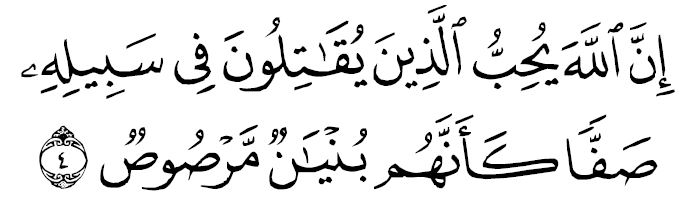 إِنَّ ٱللَّهَ يُحِبُّ ٱلَّذِينَ يُقَـٰتِلُونَ فِى سَبِيلِهِۦ
صَفًّا كَأَنَّهُم بُنْيَـٰنٌ مَّرْصُوصٌ ٤